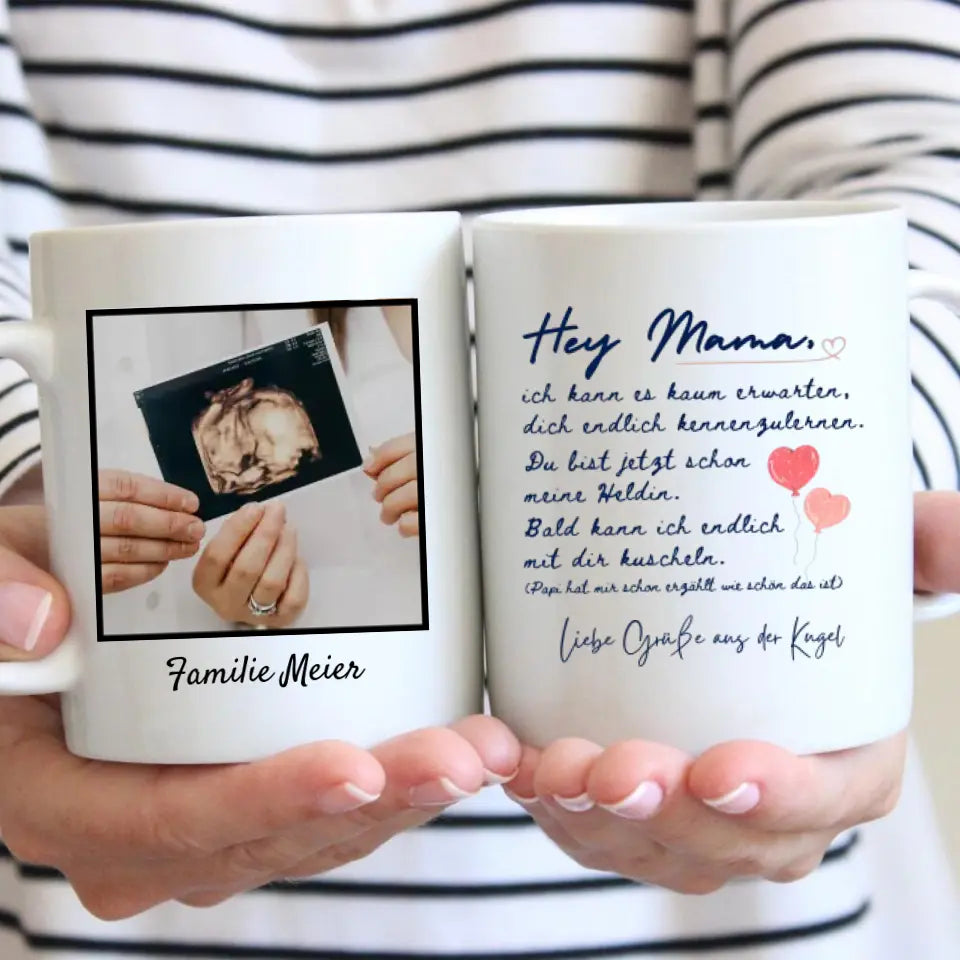 Familie Meier
Hey Mama,
ich kann es kaum erwarten,
dich endlich kennenzulernen.
Du bist jetzt schon
meine Heldin.
Bald kann ich endlich
mit dir kuscheln.
(Papi hat mir schon erzählt wie schön das ist)
Liebe Grüße aus der Kugel